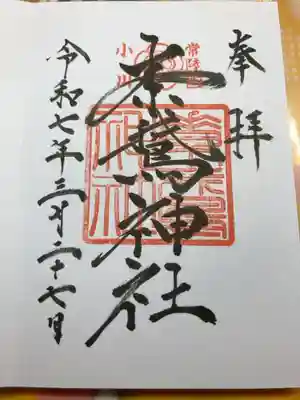 奉拝
常陸
素鵞神社
小川
令和七年三月二十七日